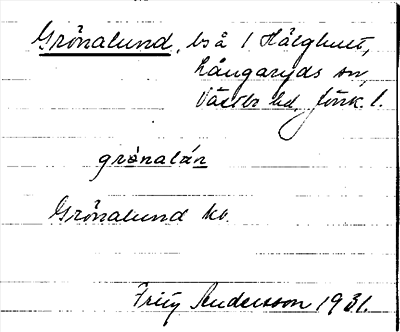 Grönalund, bs å 1 Hälghult,
Långaryds sn,
Västbo hd, Jönk. l.
grønalán
Grönalund ko.
Frity Andersson 1931.